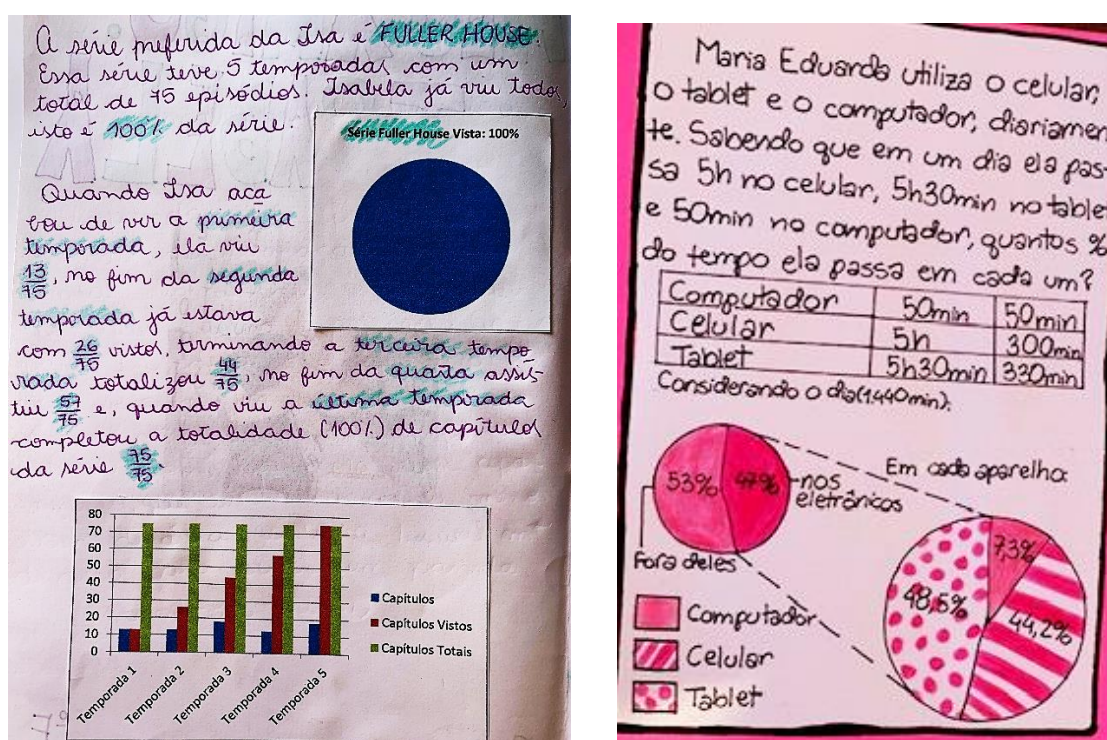 A série preferida da Isa é FULLER HOUSE.
Essa série teve 5 temporadas com um
total de 75 episódios. Isabela já viu todos,
isto é 100% da série.
Série Fuller House Vista: 100%
Quando Isa aca
bou de ver a primeira
temporada, ela viu
13/75, no fim da segunda
temporada já estava
com 26/75 vistos, terminando a terceira tempo
rada totalizou 44/75, no fim da quarta assis-
tiu 57/75 e, quando viu a última temporada
completou a totalidade (100%) de capítulos
da série 75/75.
80
70
60
50
40
30
20
10
0
Temporada 1
Temporada 2
Temporada 3
Temporada 4
Temporada 5
Capítulos
Capítulos Vistos
Capítulos Totais
Maria Eduarda utiliza o celular,
o tablet e o computador, diariamen
te. Sabendo que em um dia ela pas-
sa 5h no celular, 5h30min no table
e 50min no computador, quantos %
do tempo ela passa em cada um?
Computador 50min 50min
Celular 5h 300min
Tablet 5h30min 330min
Considerando o dia(1.440min):
53% 47%
nos
eletrônicos
Em cada aparelho:
Fora deles
7,3%
48,5%
44,2%
Computador
Celular
Tablet